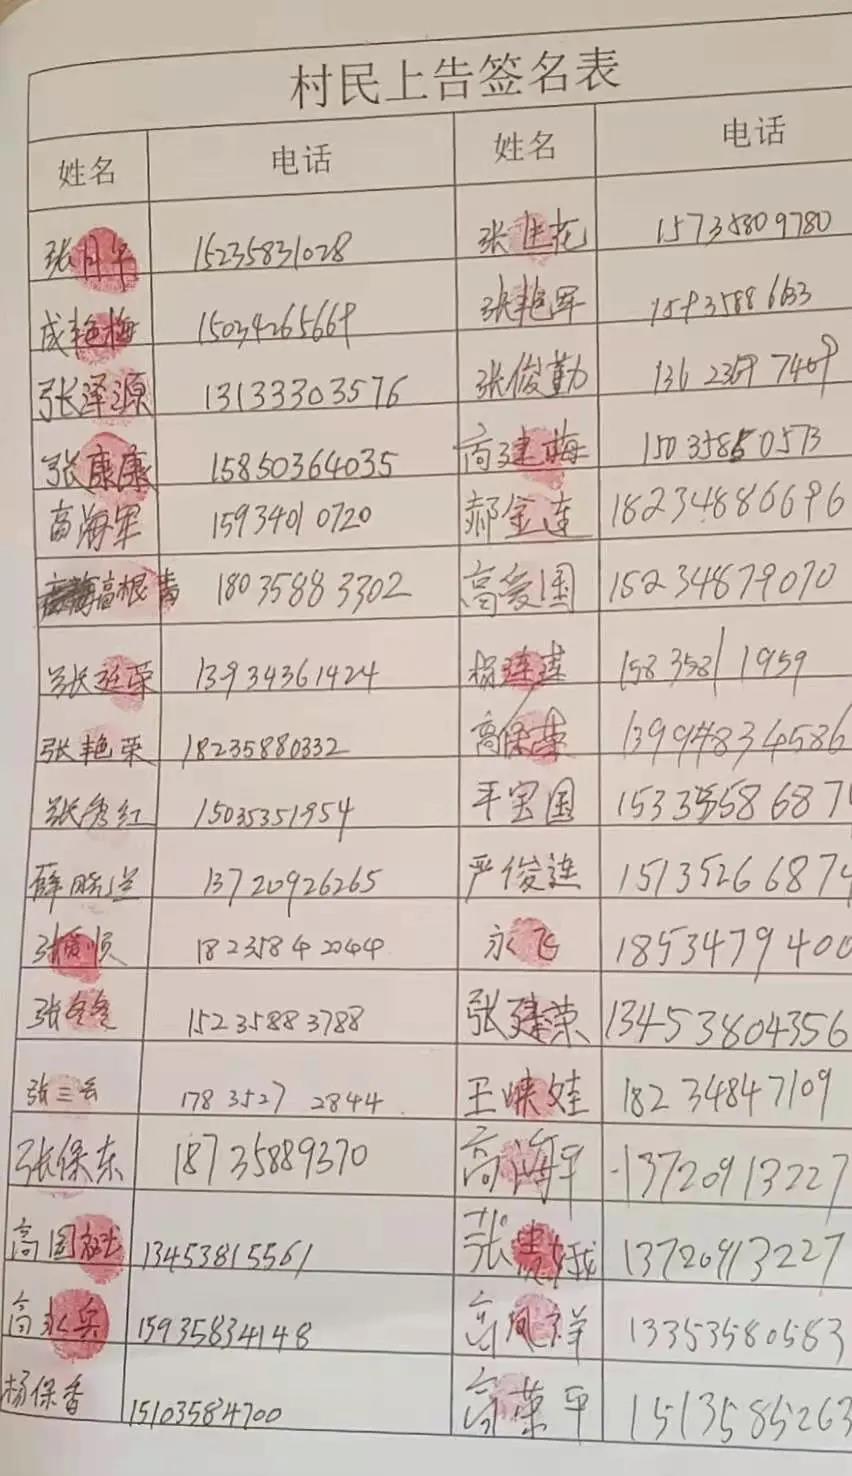 村民上告签名表
姓名 电话 姓名 电话
张月平 15235831028 张进花 15735809780
成艳梅 15034265669 张艳军
张泽源 13133303576 张俊勤 13623697469
张康康 15850364035 高建梅 15035850573
高海军 15934010720 郝金连 18234886696
高根青 18035883302 高爱国 15234879070
张进荣 13934361424 杨连连 15835811959
张艳荣 18235880332 高保荣 13994834586
张秀红 15035351954 平宝国
薛晓兰 13720926265 严俊连 1513526687
张爱顺 18235842044 永飞 1853479400
张冬冬 15235883788 张建荣 13453804356
张三云 17835272844 王峡娃 18234847109
张保东 18735889370 高海平 13720913227
高国斌 13453815561 张 娥 13720913227
高永兵 15935834148 高凤祥 13353580583
杨保香 15103584700 高荣平 1513585263